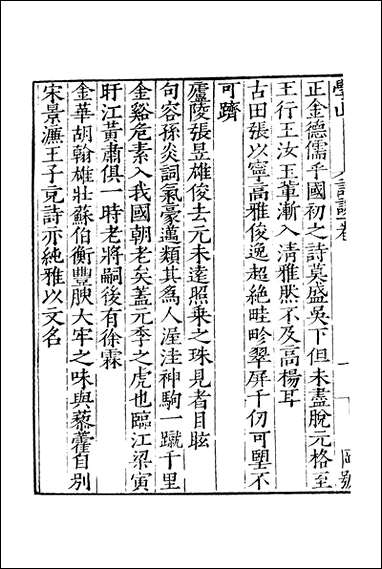 學山 詩談卷 一 岡號
正金德儒乎國初之詩莫盛吳下但未盡脫元格至
王行王汝玉軰漸入清雅然不及高楊耳
古田張以寧高雅俊逸超絶畦畛翠屏千仞可朢不
可躋
廬陵張昱雄俊去元未遠照乗之珠見者目眩
句容孫炎詞氣豪邁類其爲人渥洼神駒一蹴千里
金谿危素入我國朝老矣葢元季之虎也臨江梁寅
盱江黃肅俱一時老將嗣後有徐霖
金華胡翰雄壯蘇伯衡豐腴大牢之味與藜藿自別
宋景濂王子充詩亦純雅以文名